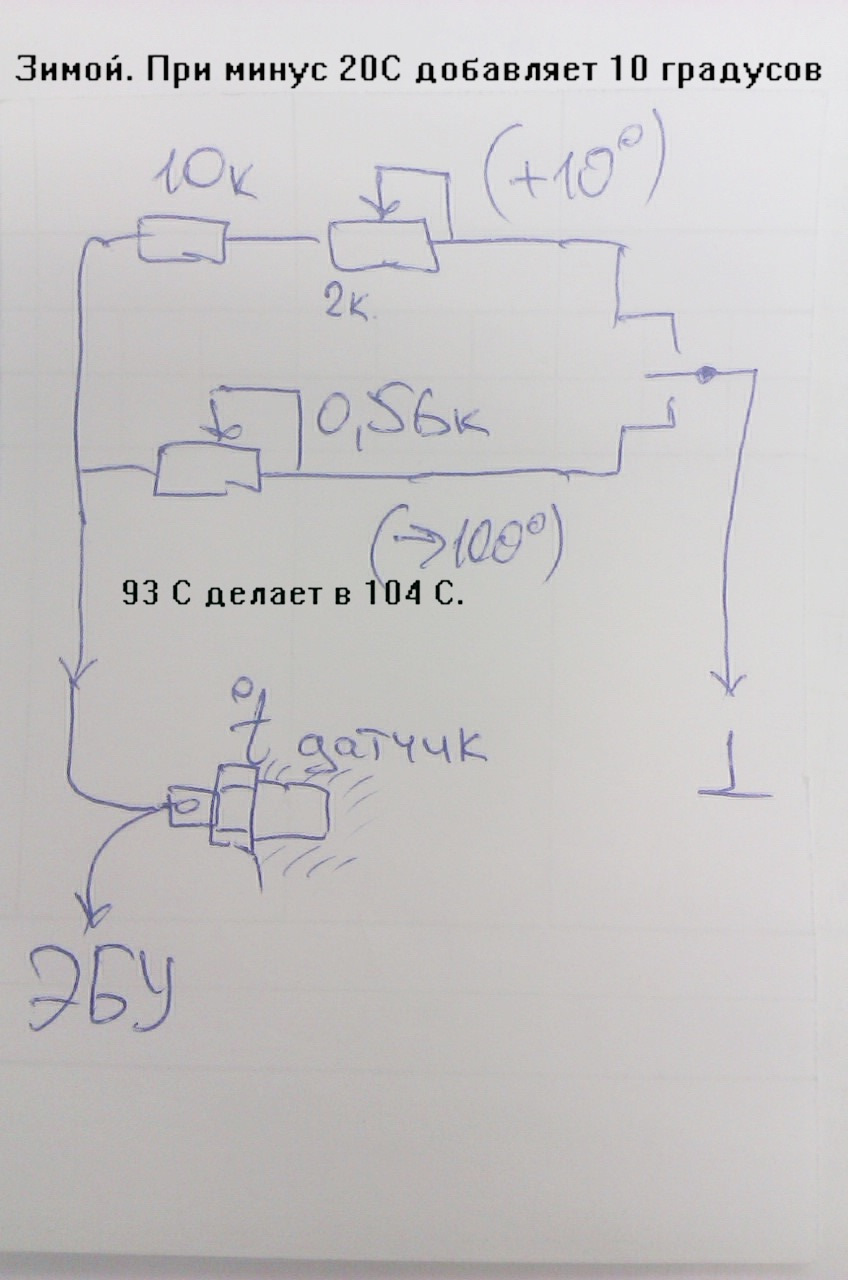 Зимой. При минус 20С добавляет 10 градусов
10к
(+10°)
2к.
0,56к
(→100°)
93 С делает в 104 С.
t°
датчик
ЭБУ